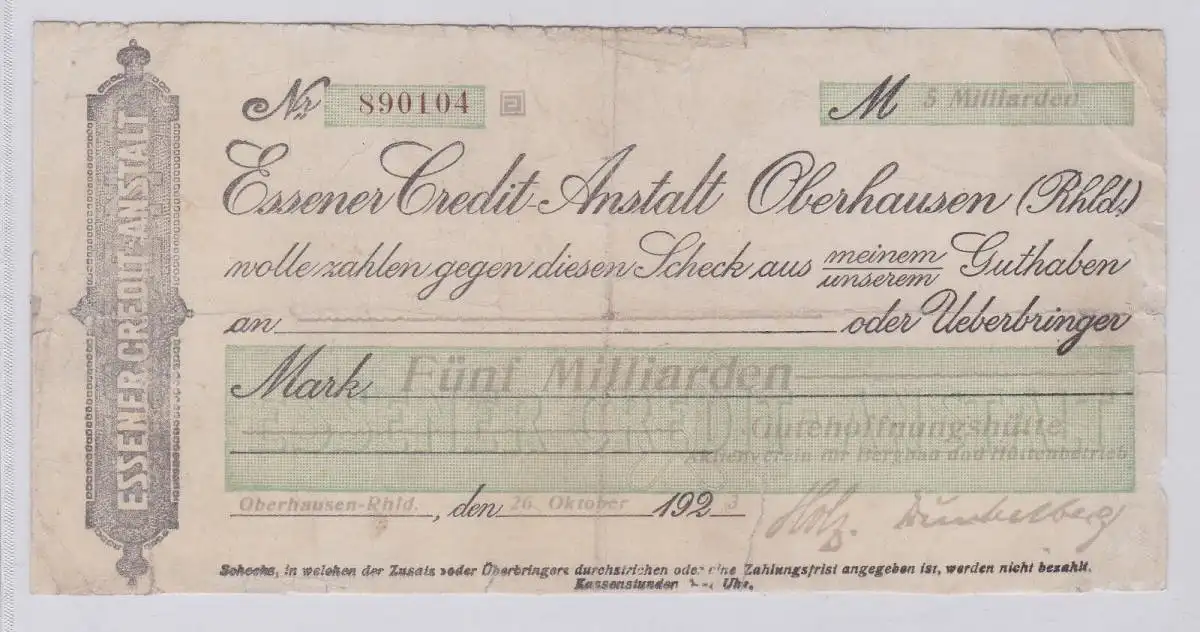 ESSENER CREDIT-ANSTALT
Nr. 890104 M 5 Milliarden
Essener Credit-Anstalt Oberhausen (Rhld.)
wolle zahlen gegen diesen Scheck aus meinem Guthaben
unserem
an oder Ueberbringer
Mark Fünf Milliarden
ESSENER CREDIT-ANSTALT
Gutehoffnungshütte
Aktienverein für Bergbau und Hüttenbetrieb
Oberhausen-Rhld., den 26 Oktober 1923
Holz. Dunkelberg
Schecks, in welchen der Zusatz »oder Überbringer« durchstrichen oder eine Zahlungsfrist angegeben ist, werden nicht bezahlt.
Kassenstunden Uhr.